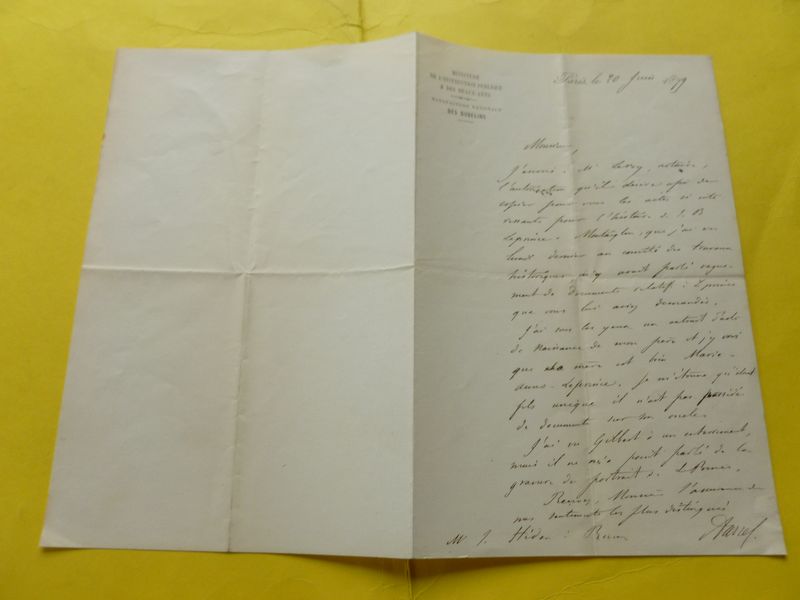 MINISTÈRE
DE L'INSTRUCTION PUBLIQUE
& DES BEAUX-ARTS
MANUFACTURE NATIONALE
DES GOBELINS
Paris le 20 Juin 1879
Monsieur,
J'envoie à Mr Leroy, notaire,
l'autorisation qu'il désire afin de
copier pour vous les actes si inté
ressants pour l'histoire de J. B
Leprince. Montaiglon, que j'ai vu
lundi dernier au comité des travaux
historiques m'y avait parlé vague-
ment de documents relatifs à Leprince
que vous lui aviez demandés.
J'ai sous les yeux un extrait d'acte
de naissance de mon père et j'y vois
que sa mère est bien Marie-
Anne Leprince. Je m'étonne qu'étant
fils unique il n'ait pas possédé
de documents sur son oncle.
J'ai vu Gilbert à un enterrement,
mais il ne m'a point parlé de la
gravure du portrait de Le Prince.
Recevez, Monsieur l'assurance de
mes sentiments les plus distingués
Darcel
Mr J. Hédou à Rouen